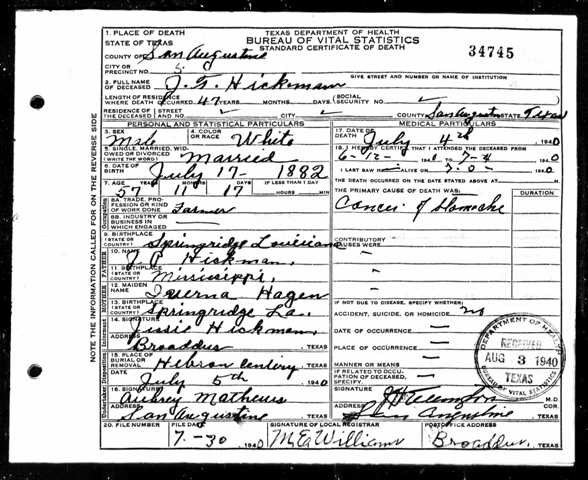 TEXAS DEPARTMENT OF HEALTH
BUREAU OF VITAL STATISTICS
STANDARD CERTIFICATE OF DEATH
34745
1. PLACE OF DEATH
STATE OF TEXAS
COUNTY OF San Augustine
CITY OR PRECINCT NO. 5
GIVE STREET AND NUMBER OR NAME OF INSTITUTION
2. FULL NAME OF DECEASED J. T. Hickman
LENGTH OF RESIDENCE WHERE DEATH OCCURRED 47 YEARS MONTHS DAYS (SOCIAL SECURITY NO.
RESIDENCE OF THE DECEASED STREET AND NO. CITY COUNTY San Augustine STATE Texas
PERSONAL AND STATISTICAL PARTICULARS
3. SEX Male
4. COLOR OR RACE White
5. SINGLE, MARRIED, WIDOWED OR DIVORCED (WRITE THE WORD) Married
6. DATE OF BIRTH July 17- 1882
7. AGE 57 11 17 IF LESS THAN 1 DAY HOURS MIN.
8A. TRADE, PROFESSION OR KIND OF WORK DONE Farmer
8B. INDUSTRY OR BUSINESS IN WHICH ENGAGED
9. BIRTHPLACE (STATE OR COUNTRY) Springridge Louisiana
10. NAME J. P. Hickman
11. BIRTHPLACE (STATE OR COUNTRY) Mississippi
12. MAIDEN NAME Hagen
13. BIRTHPLACE (STATE OR COUNTRY) Springridge La.
14. SIGNATURE Jessie Hickman
ADDRESS Broaddus, TEXAS
15. PLACE OF BURIAL OR REMOVAL Hebron , TEXAS
DATE July 5th, 1940
16. SIGNATURE Aubrey Mathews
ADDRESS San Augustine, TEXAS
MEDICAL PARTICULARS
17. DATE OF DEATH July 4th, 1940
18. I HEREBY CERTIFY THAT I ATTENDED THE DECEASED FROM 6-12- 1940 TO 7-4 1940
I LAST SAW ALIVE ON 1940
THE DEATH OCCURRED ON THE DATE STATED ABOVE AT M.
THE PRIMARY CAUSE OF DEATH WAS: DURATION
Cancer of Stomache
CONTRIBUTORY CAUSES WERE:
IF NOT DUE TO DISEASE, SPECIFY WHETHER:
ACCIDENT, SUICIDE, OR HOMICIDE no
DATE OF OCCURRENCE
PLACE OF OCCURRENCE
MANNER OR MEANS
IF RELATED TO OCCUPATION OF DECEASED, SPECIFY
SIGNATURE M.D.
ADDRESS San Augustine COR. TEXAS
20. FILE NUMBER
FILE DATE 7-30 1940
SIGNATURE OF LOCAL REGISTRAR M. E. Williams
POSTOFFICE ADDRESS Broaddus, TEXAS
DEPARTMENT OF HEALTH
RECEIVED
AUG 3 1940
TEXAS
BUREAU OF VITAL STATISTICS
NOTE THE INFORMATION CALLED FOR ON THE REVERSE SIDE
Occupation
FATHER
MOTHER
Informant